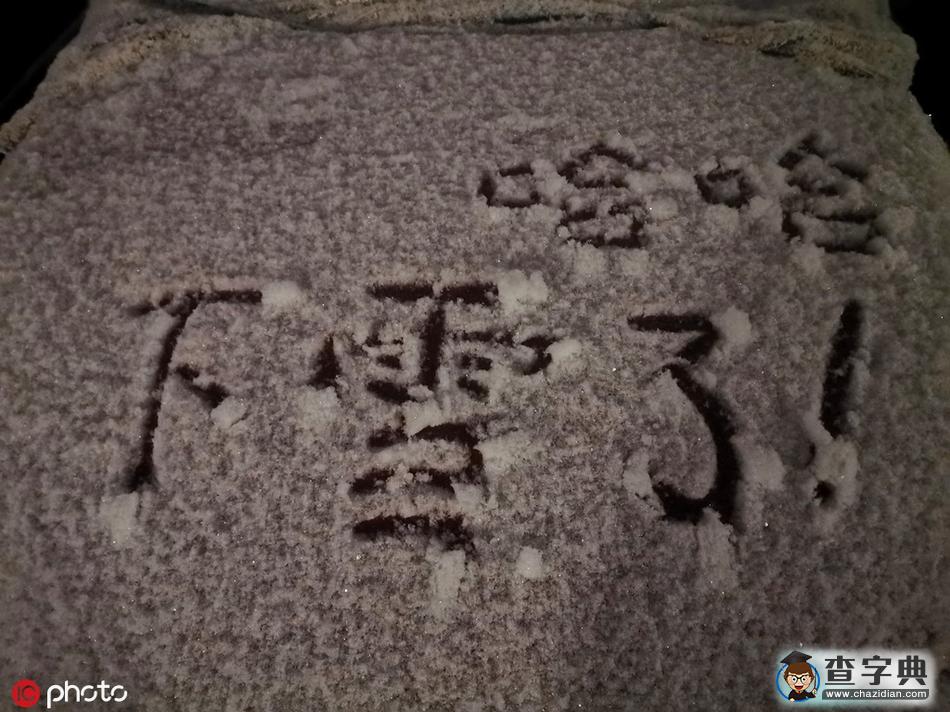 哈哈
下雪了!
iC photo
查字典
www.chazidian.com